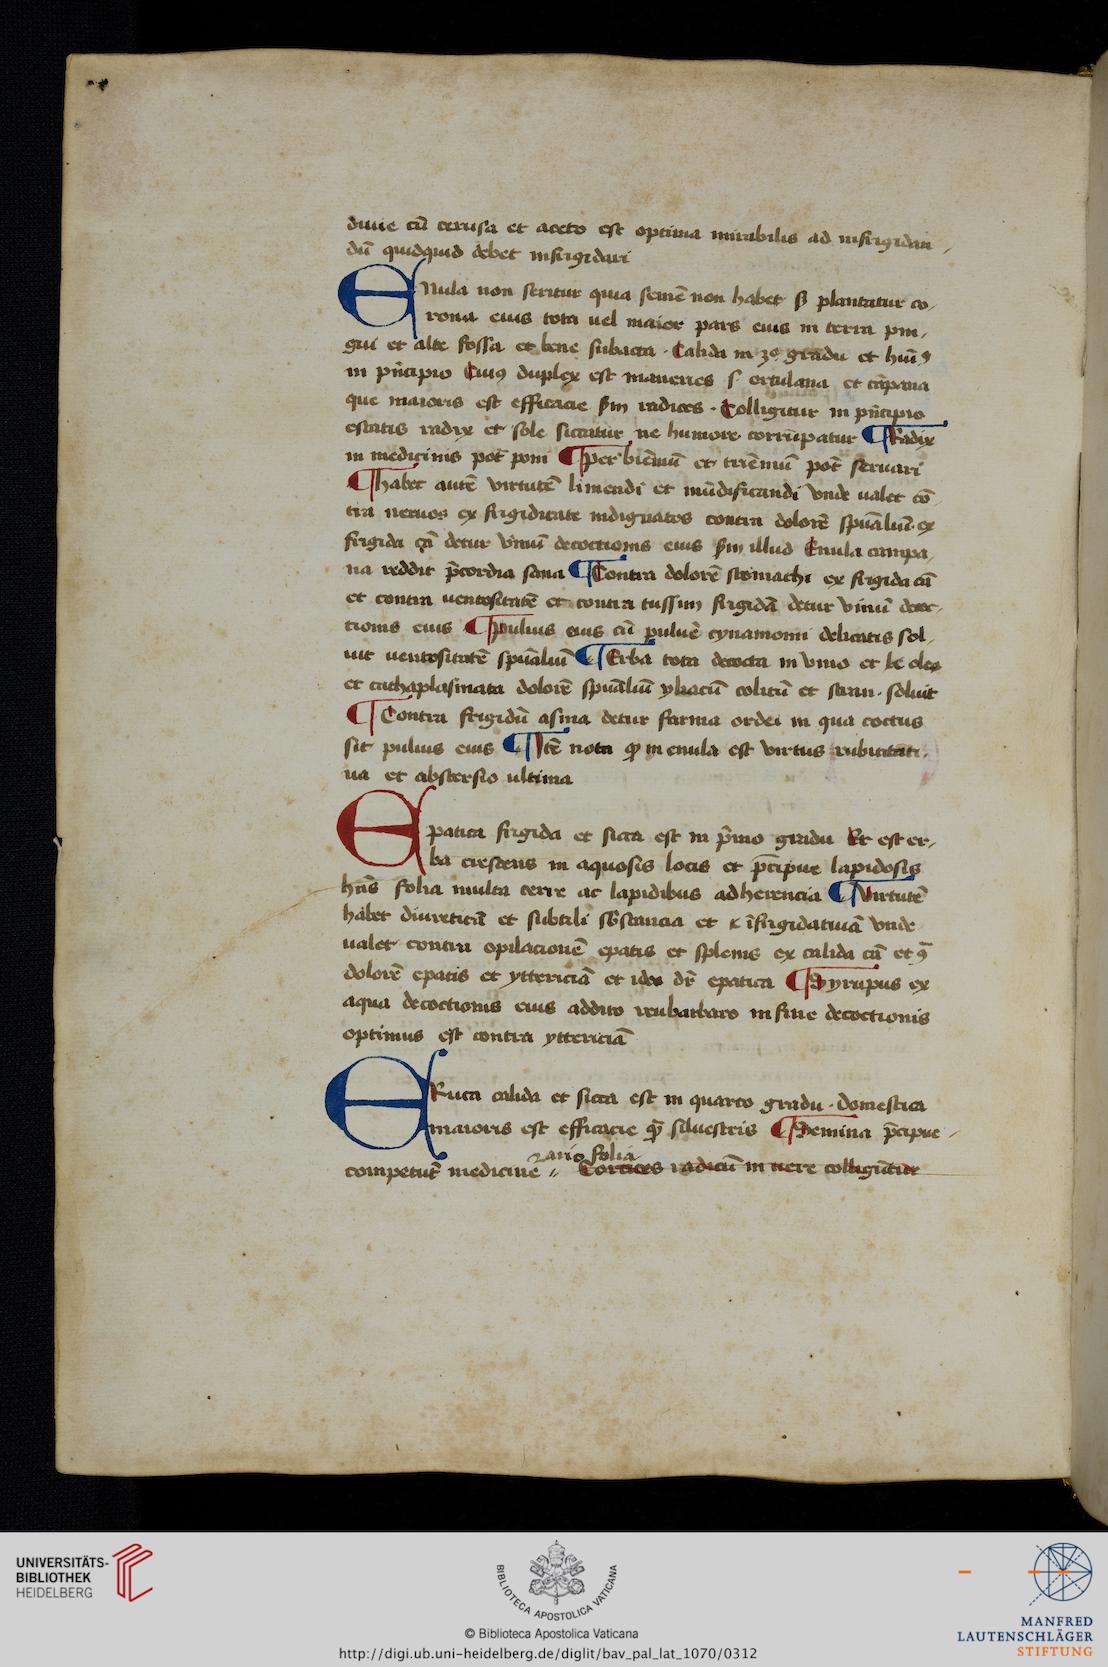 diuie cū cerusa et aceto est optima mirabilis ad infrigidan
dū quidquid debet infrigidari
Enula non seritur quia semē non habet s̄ plantatur co
rona eius tota uel maior pars eius in terra pin
gui et alte fossa et bene subacta · Calida in 3º gradu et
in p̄ncipio Cuiꝯ duplex est maneries s· ortulana et cāpana
que maioris est efficacie radices · Colligitur in p̄ncipio
estatis radix et sole siccatur ne humore corrūpatur ¶ Radix
in medicinis pot̄ poni ¶ per bienniū et trienniū pot̄ seruari
¶ habet autē virtutē liniendi et mūdificandi vnde ualet cō
tra neruos ex frigiditate indignatos contra dolorē spūaliū ex
frigida cā detur vinū decoctionis eius illud Enula campa
na reddit p̄cordia sana ¶ Contra dolorē stomachi ex frigida cā
et contra uentositatē et contra tussim frigidā detur vinū decoc
tionis eius ¶ puluis eius cū puluē cynamomi delicatis sol
uit uentositatē spūaliū ¶ Erba tota decocta in vino et oleo
et cathaplasmata dolorē spūaliū yliacū colicū et stran· soluit
¶ Contra frigidū asma detur farina ordei in qua coctus
sit puluis eius ¶ Itē nota ꝙ in enula est virtus rubicitati
ua et abstersio ultima
Epatica frigida et sicca est in p̄mo gradu Et est er
ba crescens in aquosis locis et p̄cipue lapidosis
hn̄s folia multa terre ac lapidibus adherencia ¶ Virtutē
habet diureticā et subtili sb̄stancia et ex īfrigidatiuā vnde
ualet contra opilacionē epatis et splenis ex calida cā et
dolorē epatis et yttericiā et ideo dr̄ epatica ¶ Syrupus ex
aqua decoctionis eius addito reubarbaro in fine decoctionis
optimus est contra yttericiā
ERuca calida et sicca est in quarto gradu · domestica
maioris est efficacie siluestris ¶ Semina p̄cipue
folia
competūt medicine Cortices radicū in uere colligūtur
UNIVERSITÄTS-
BIBLIOTHEK
HEIDELBERG
BIBLIOTECA APOSTOLICA VATICANA
© Biblioteca Apostolica Vaticana
http://digi.ub.uni-heidelberg.de/diglit/bav_pal_lat_1070/0312
MANFRED
LAUTENSCHLÄGER
STIFTUNG